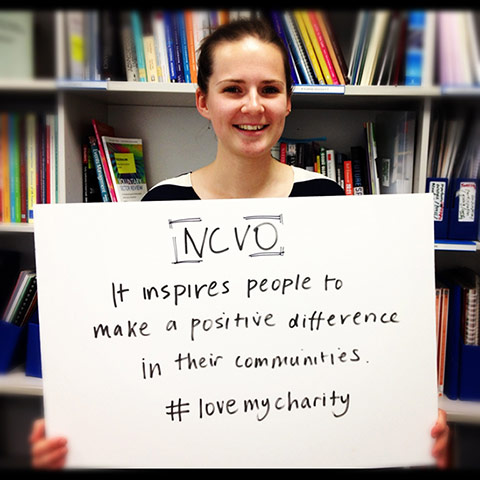 NCVO
It inspires people to
make a positive difference
in their communities.
#lovemycharity